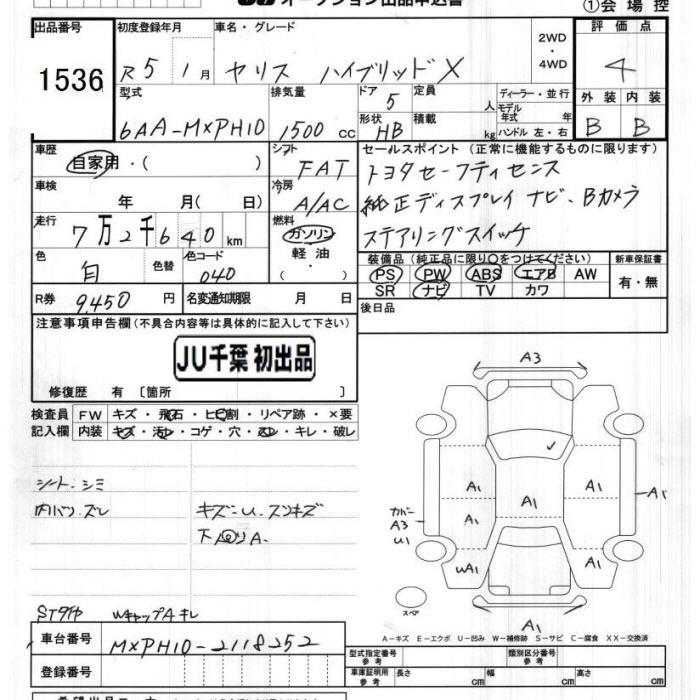 オークション出品申込書
①会場控
出品番号 1536
初度登録年月 R5 1月
車名・グレード ヤリス ハイブリッドX
2WD・4WD
評価点 4
型式 6AA-MXPH10
排気量 1500 cc
ドア 5
形状 HB
定員 人
積載 kg
ディーラー・並行
モデル年式 年
ハンドル 左・右
外装 内装
B B
車歴 自家用・( )
シフト FAT
セールスポイント(正常に機能するものに限ります)
トヨタセーフティセンス
純正ディスプレイナビ、Bカメラ
ステアリングスイッチ
車検 年 月( 日)
冷房 A/AC
走行 7万2千640km
燃料 ガソリン・軽油・( )
色 白 色替
色コード 040
装備品(純正品に限り○をつけてください)
PS PW ABS エアB AW
SR ナビ TV カワ
新車保証書
有・無
R券 9,450円
名変通知期限 月 日
後日品
注意事項申告欄(不具合内容等は具体的に記入して下さい)
JU千葉 初出品
修復歴 有〔箇所 〕
検査員記入欄
FW キズ・飛石・ヒビ割・リペア跡・×要
内装 キズ・汚レ・コゲ・穴・スレ・キレ・破レ
シート、シミ
内バリ、ズレ
キズ-U、スリキズ
A3
A1 A1 A1 A1
カバー A3 U1
A1 A1
wA1 A1
スペア
A1
A-キズ E-エクボ U-凹み W-補修跡 S-サビ C-腐食 XX-交換済
車台番号 MXPH10-2118252
登録番号
型式指定番号 参考
類別区分番号 参考
車庫証明用 参考
長さ cm 幅 cm 高さ cm